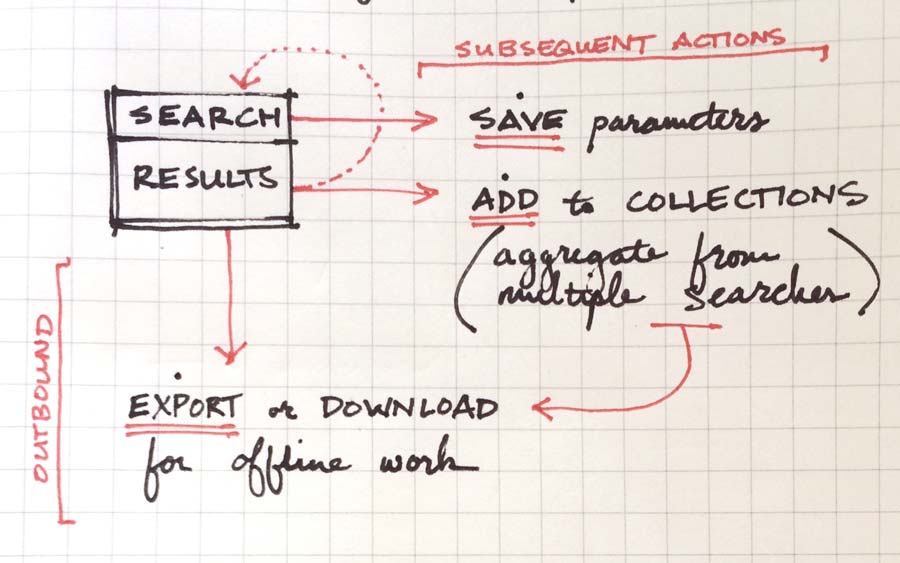 SUBSEQUENT ACTIONS
SEARCH
SAVE parameters
RESULTS
ADD to COLLECTIONS
(aggregate from
multiple searches)
OUTBOUND
EXPORT or DOWNLOAD
for offline work